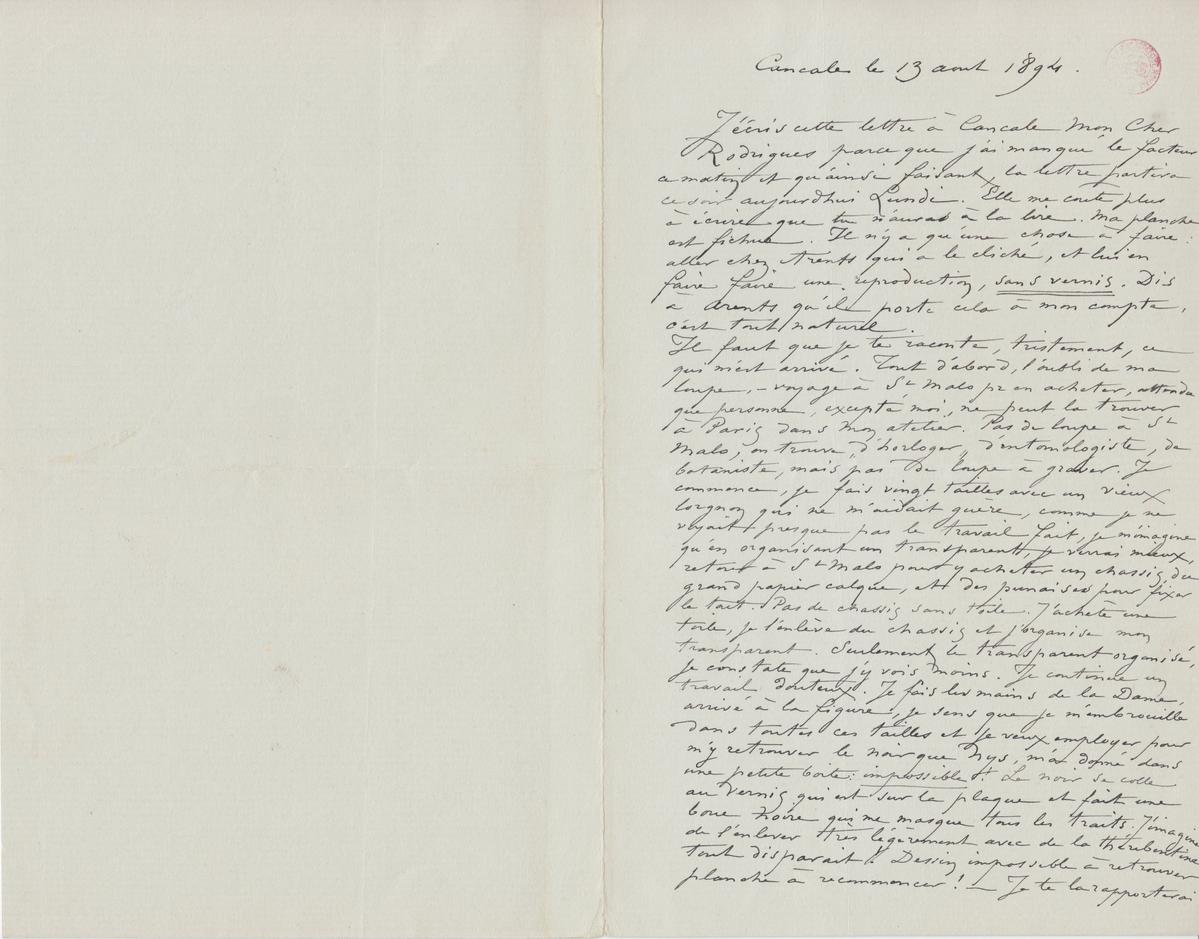 Cancale le 13 aout 1894.
J'écris cette lettre à Cancale Mon Cher
Rodrigues parce que j'ai manqué le facteur
ce matin et qu'ainsi faisant, la lettre partira
ce soir aujourd'hui Lundi. Elle me coute plus
à écrire que tu n'auras à la lire. Ma planche
est fichue. Il n'y a qu'une chose à faire :
aller chez Arents qui a le cliché, et lui en
faire faire une reproduction, sans vernis. Dis
à Arents qu'il porte cela à mon compte,
c'est tout naturel.
Il faut que je te raconte, tristement, ce
qui m'est arrivé. Tout d'abord, l'oubli de ma
loupe, - voyage à St Malo pr en acheter, attendu
que personne, excepté moi, ne peut la trouver
à Paris dans mon atelier. Pas de loupe à St
Malo, on trouve d'horloger, d'entomologiste, de
botaniste, mais pas de loupe à graver. Je
commence, je fais vingt tailles avec un vieux
lorgnon qui ne m'aidait guère, comme je ne
voyait presque pas le travail fait, je m'imagine
qu'en organisant un transparent, je verrai mieux,
retour à St Malo pour y acheter un chassis, du
grand papier calque, et des punaises pour fixer
le tout. Pas de chassis sans toile. J'achète une
toile, je l'enlève du chassis et j'organise mon
transparent. Seulement le transparent organisé,
je constate que j'y vois moins. Je continue un
travail douteux. Je fais les mains de la Dame,
arrivé à la figure, je sens que je m'embrouille
dans toutes ces tailles et je veux employer pour
m'y retrouver le noir que Nys, m'a donné dans
une petite boite : impossible ! Le noir se colle
au vernis qui est sur la plaque et fait une
boue noire qui me masque tous les traits. J'imagine
de l'enlever très légèrement avec de la thérébentine
tout disparait ! Dessin impossible à retrouver
planche à recommencer ! — Je te la rapporterai